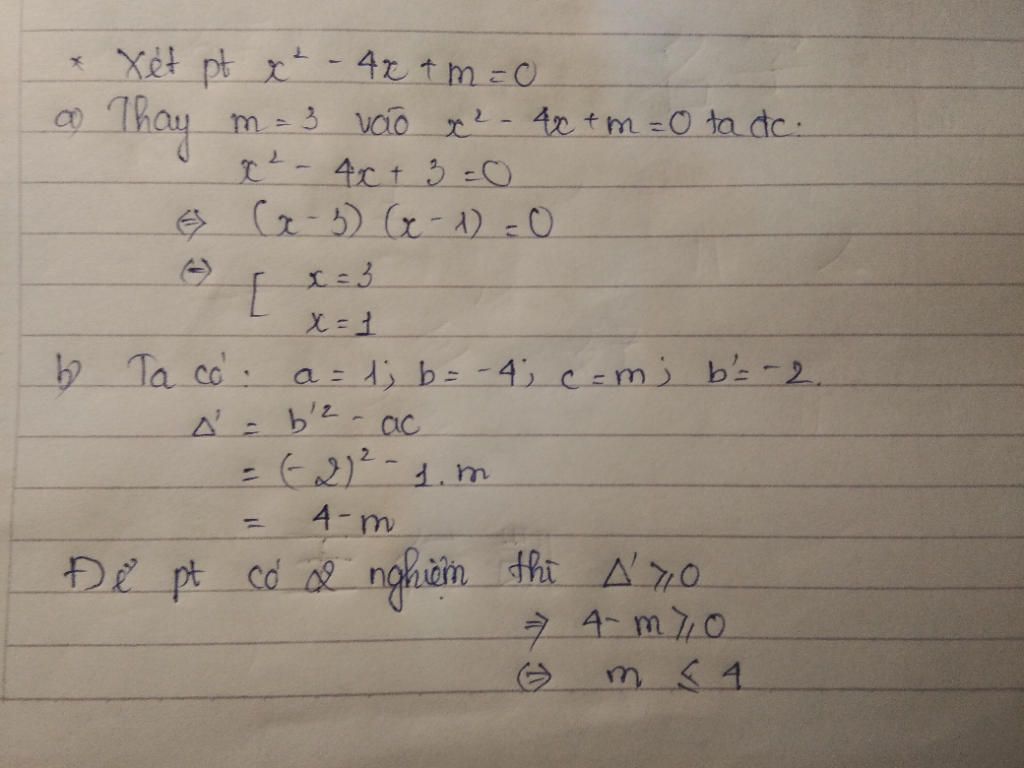 * Xét pt x² - 4x + m = 0
a) Thay m = 3 vào x² - 4x + m = 0 ta đc:
x² - 4x + 3 = 0
⇔ (x - 3) (x - 1) = 0
⇔ [ x = 3
x = 1
b) Ta có: a = 1; b = -4; c = m; b' = -2.
Δ' = b'² - ac
= (-2)² - 1.m
= 4 - m
Để pt có 2 nghiệm thì Δ' ⩾ 0
⇒ 4 - m ⩾ 0
⇔ m ⩽ 4